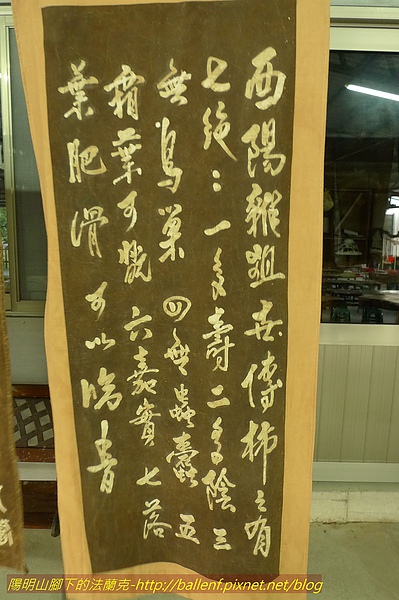 酉陽雜俎世傳柿之有
七絕：一多壽二多陰三
無鳥巢四無蟲蠹五
霜葉可翫六嘉實七落
葉肥滑可以臨書
陽明山腳下的法蘭克-http://ballenf.pixnet.net/blog